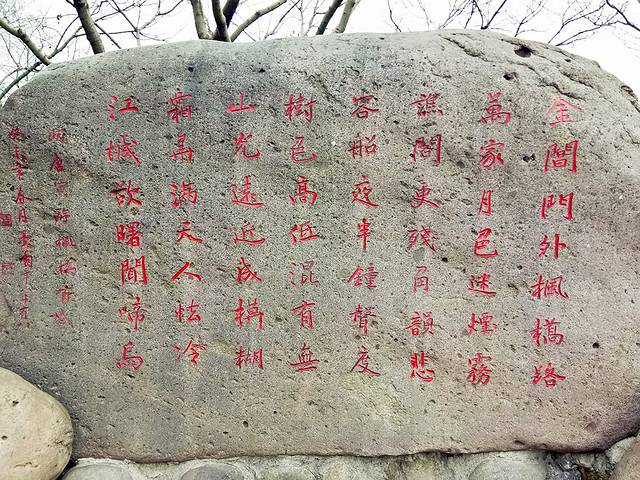 金閶門外楓橋路
萬家月色迷煙霧
譙閣更殘角韻悲
客船夜半鐘聲度
樹色高低混有無
山光遠近成模糊
霜華滿天人怯冷
江城欲曙聞啼烏
唐寅詩楓橋
春月